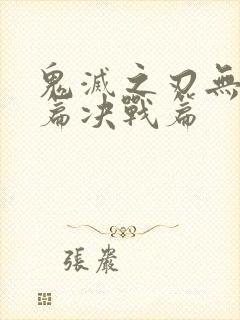 鬼滅之刃無
篇決戰篇
張嚴